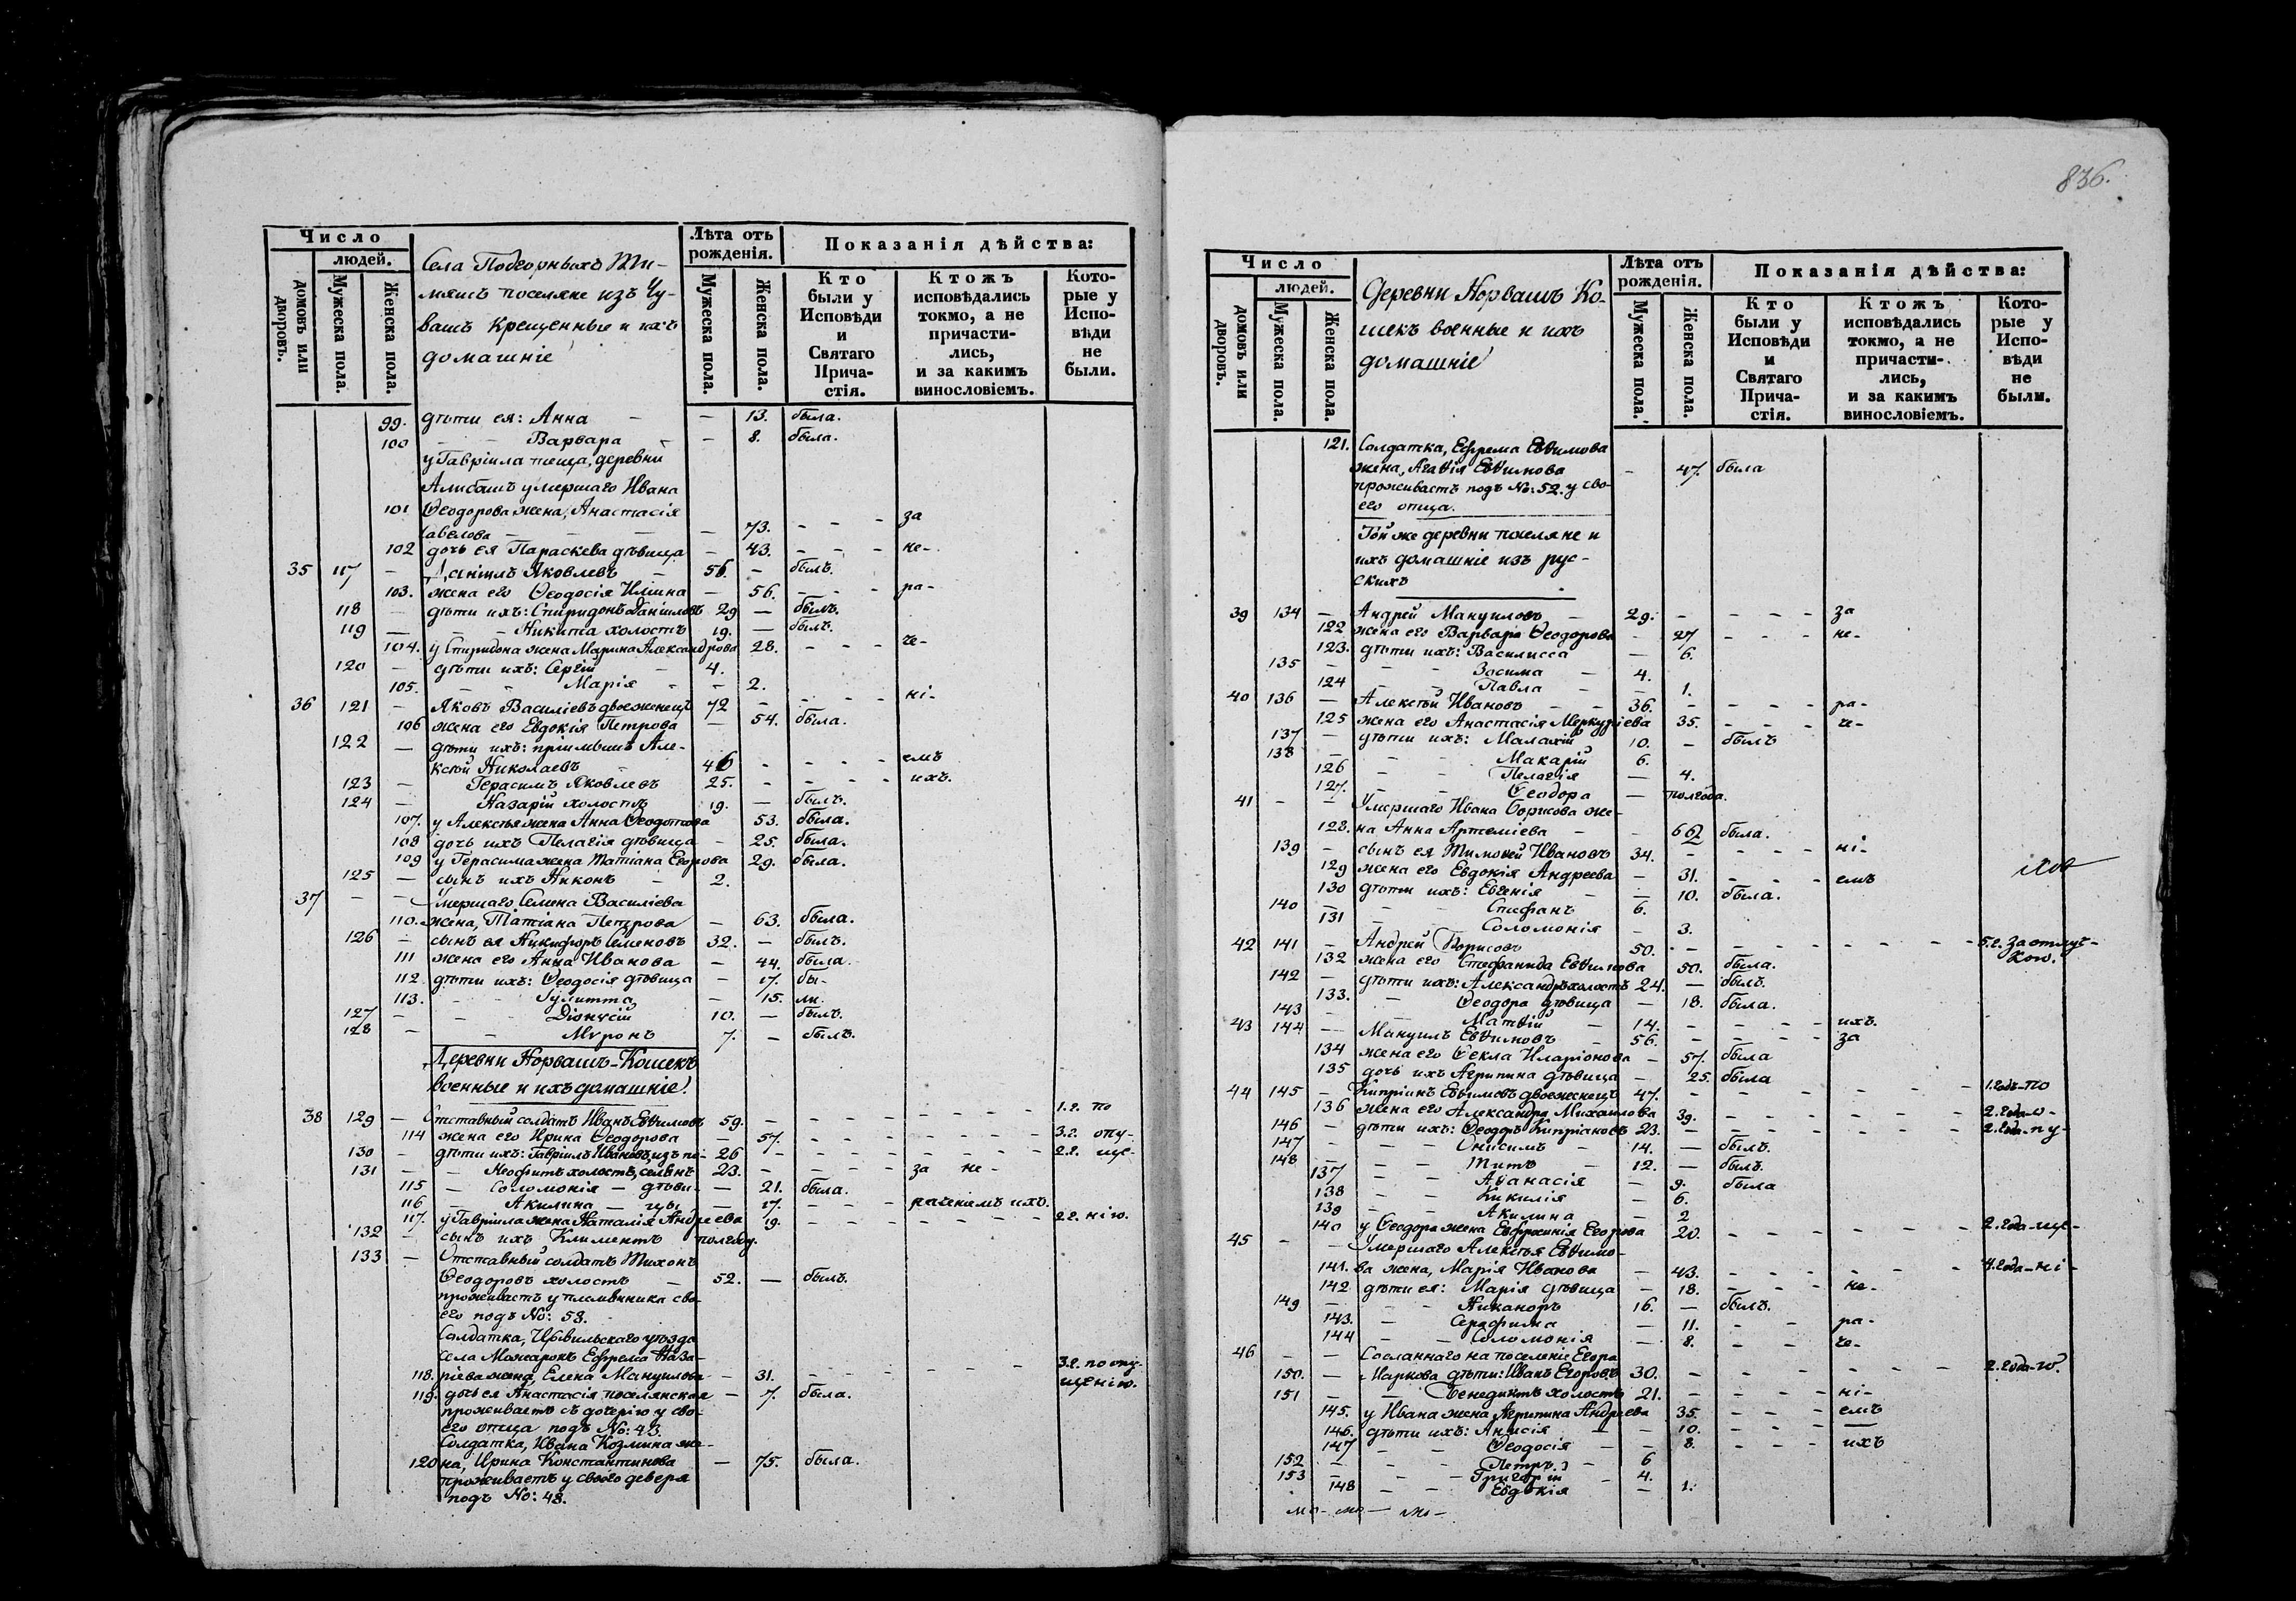 836.
Число
людей.
домовъ или дворовъ.
Мужеска пола.
Женска пола.
Села Подгорныхъ Ти-
мяшъ поселяне изъ Чу-
вашъ Крещенные и ихъ
домашніе
Лѣта отъ рожденія.
Мужеска пола.
Женска пола.
Показанія дѣйства:
Кто были у Исповѣди и Святаго Прича-стія.
Ктожъ исповѣдались токмо, а не причасти-лись, и за какимъ винословіемъ.
Кото-рые у Испо-вѣди не были.
99. дѣти ея: Анна — — 13. была.
100 — — Варвара — — 8. была.
у Гавріила теща, деревни
Алисбашъ умершаго Ивана
101 Ѳеодорова жена, Анастасія за
Савелова — — — — 73. - - -
102 дочь ея Параскева дѣвица — 43. - - - не-
35 117 — Даніилъ Яковлевъ — 56. — былъ.
103. жена его Ѳеодосія Ильина — 56. - - - ра-
118 — дѣти ихъ: Спиридонъ Даніиловъ 29 — былъ.
119 — — — Никита холостъ 19. — былъ.
104. у Спиридона жена Марина Александрова 28. - - - че-
120 — дѣти ихъ: Сергій — 4.
105. — — Марія — - 2.
36 121 — Яковъ Василіевъ двоеженецъ 72 - - - - ні-
106 жена его Евдокія Петрова — 54. была.
122 — дѣти ихъ: пріимышъ Але-
ксѣй Николаевъ — 46 - - - - емъ
123 — Герасимъ Яковлевъ 25. - - - - ихъ.
124 — Назарій холостъ 19. — былъ.
107. у Алексѣя жена Анна Ѳеодотова 53. была.
108 дочь ихъ Пелагія дѣвица — 25. была.
109 у Герасима жена Татіана Егорова 29. была.
125 — сынъ ихъ Никонъ — 2.
37 — — Умершаго Семена Василіева
110. жена, Татіана Петрова — 63. была.
126 — сынъ ея Никифоръ Семеновъ 32. — былъ.
111 жена его Анна Иванова — 44. была.
112 дѣти ихъ: Ѳеодосія дѣвица — 17. бы-
113. - - Іулитта — 15. ли.
127 — — Діонѵсій 10. — былъ.
128 — — Мѵронъ 7. — былъ.
Деревни Норвашъ-Кошекъ
военные и ихъ домашніе
38 129 — Отставный солдатъ Иванъ Евѳимовъ 59. - - - - - - - 1.г. по
114 жена его Ирина Ѳеодорова — 57. - - - - - - - 3.г. опу-
130 — дѣти ихъ: Гавріилъ Ивановъ, изъ по- 26 - - - - - - - 2.г. ще-
131 — — Неофитъ холостъ, селянъ 23. - - - - за не -
115 — Соломонія — дѣви- — 21. была.
116 — Акилина — цы — 17. - - - раченіемъ ихъ.
117. у Гавріила жена Наталія Андреева 19. - - - - - - - 2.г. нію.
132 — сынъ ихъ Климентъ полгоду.
133 — Отставный солдатъ Тихонъ
Ѳеодоровъ холостъ — 52. — былъ.
проживаетъ у племянника сво-
его подъ No: 53.
Солдатка, Цывильскаго уѣзда
села Можаронъ Ефрема Наза-
118. ріева жена, Елена Мануилова — 31. - - - - - - 3.г. по опу-
щенію.
119. дочь ея Анастасія поселянская — 7. была.
проживаетъ съ дочерію у сво-
его отца подъ No: 43.
Солдатка, Ивана Козмина же-
120 на, Ирина Константинова — 75. была.
проживаетъ у своего деверя
подъ No: 48.
Число
людей.
домовъ или дворовъ.
Мужеска пола.
Женска пола.
Деревни Норвашъ Ко-
шекъ военные и ихъ
домашніе
Лѣта отъ рожденія.
Мужеска пола.
Женска пола.
Показанія дѣйства:
Кто были у Исповѣди и Святаго Прича-стія.
Ктожъ исповѣдались токмо, а не причасти-лись, и за какимъ винословіемъ.
Кото-рые у Испо-вѣди не были.
121. Солдатка, Ефрема Евѳимова
жена, Агаѳія Евѳимова — 47. была
проживаетъ подъ No: 52. у сво-
его отца.
Той же деревни поселяне и
ихъ домашніе изъ рус-
скихъ
39 134 — Андрей Мануиловъ — 29. - - - - за
122 жена его Варвара Ѳеодорова — 27 - - - не-
123. дѣти ихъ: Василисса — 6.
135 — — Зосима — 4.
124 — — Павла — — 1.
40 136 — Алексѣй Ивановъ — — 36. - - - - ра-
125 жена его Анастасія Меркуріева 35. - - - че-
137 — дѣти ихъ: Малахій 10. - былъ
138 — — Макарій 6.
126 — — Пелагія — 4.
127. — — Ѳеодора — полгода.
41 - — Умершаго Ивана Борисова же-
128. на Анна Артеміева — - 62 была.
139 — сынъ ея Тимоѳей Ивановъ 34. - - - - ні-
129 жена его Евдокія Андреева — 31. - - - емъ
130 дѣти ихъ: Евгенія — — 10. была.
140 — — Стефанъ 6.
131 — Соломонія — 3.
42 141 — Андрей Борисовъ 50. - - - - - - - 5.г. За отлуч-
кою.
132 жена его Стефанида Евѳимова 50. была.
142 — дѣти ихъ: Александръ холостъ 24. — былъ.
133. — Ѳеодора дѣвица — 18. была.
143 — — Матѳій — 14. - - - - ихъ.
43 144 — Мануилъ Евѳимовъ — 56. - - - - за
134 жена его Ѳекла Иларіонова — 57. была
135 дочь ихъ Агрипина дѣвица — 25. была
44 145 — Кипріянъ Евѳимовъ двоеженецъ 47. - - - - - - 1.годъ-по
136 жена его Александра Михаилова 39. - - - - - - 2.года-о-
146 — дѣти ихъ: Ѳеодоръ Кипріановъ 23. - - - - - - 2.года-пу-
147 — — Онисимъ — 14. — былъ.
148 — — Титъ — 12. — былъ.
137 — — Аѳанасія — 9. была
138 — — Кикилія — 6.
139 — — Акилина — 2
140 у Ѳеодора жена Евфросинія Егорова 20. - - - - - - 2.года-ще-
45 - — Умершаго Алексѣя Евѳимо-
141. ва жена, Марія Иванова — 43. - - - - - - 4.года-ні-
142 дѣти ея: Марія дѣвица — 18. - - - не-
149 — — Никаноръ 16. — былъ.
143. — Серафима — 11. - - ра-
144 — — Соломонія — 8. - - че-
46 — — Сосланнаго на поселеніе Егора
150. — Маркова дѣти: Иванъ Егоровъ 30. - - - - - - 2.года-ю.
151 — — Бенедиктъ холостъ 21. - - - - ні-
145. у Ивана жена Агрипина Андреева 35. - - - емъ
146. дѣти ихъ: Анисія — — 10. - - -
147 — — Ѳеодосія — — 8. - - - ихъ
152 — — Петръ — 6
153 — — Григорій — 4.
148 — — Евдокія — 1.